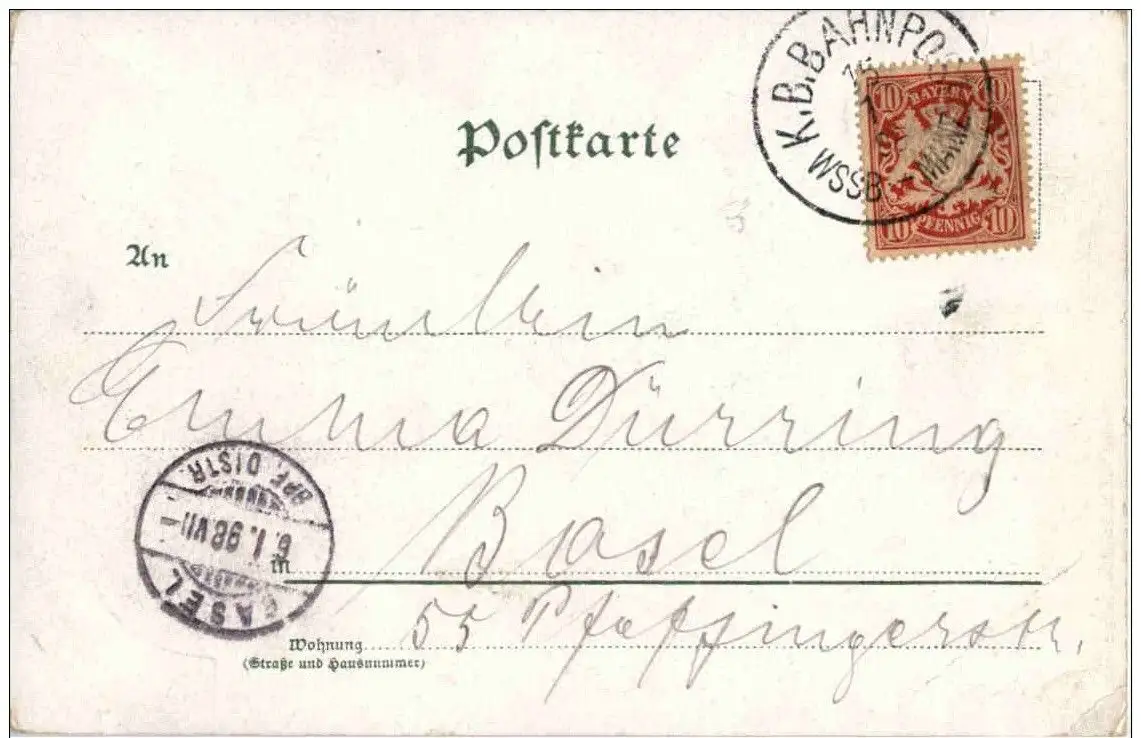 K.B.BAHNPOS
15
1
WSSB - MÜNC
10 BAYERN 10
10 PFENNIG 10
Postkarte
An Fräulein
Emma Dürring
BRF. DISTR.
6.I.98.VII-
BASEL
in Basel
Wohnung 55 Pfeffingerstr.
(Straße und Hausnummer)